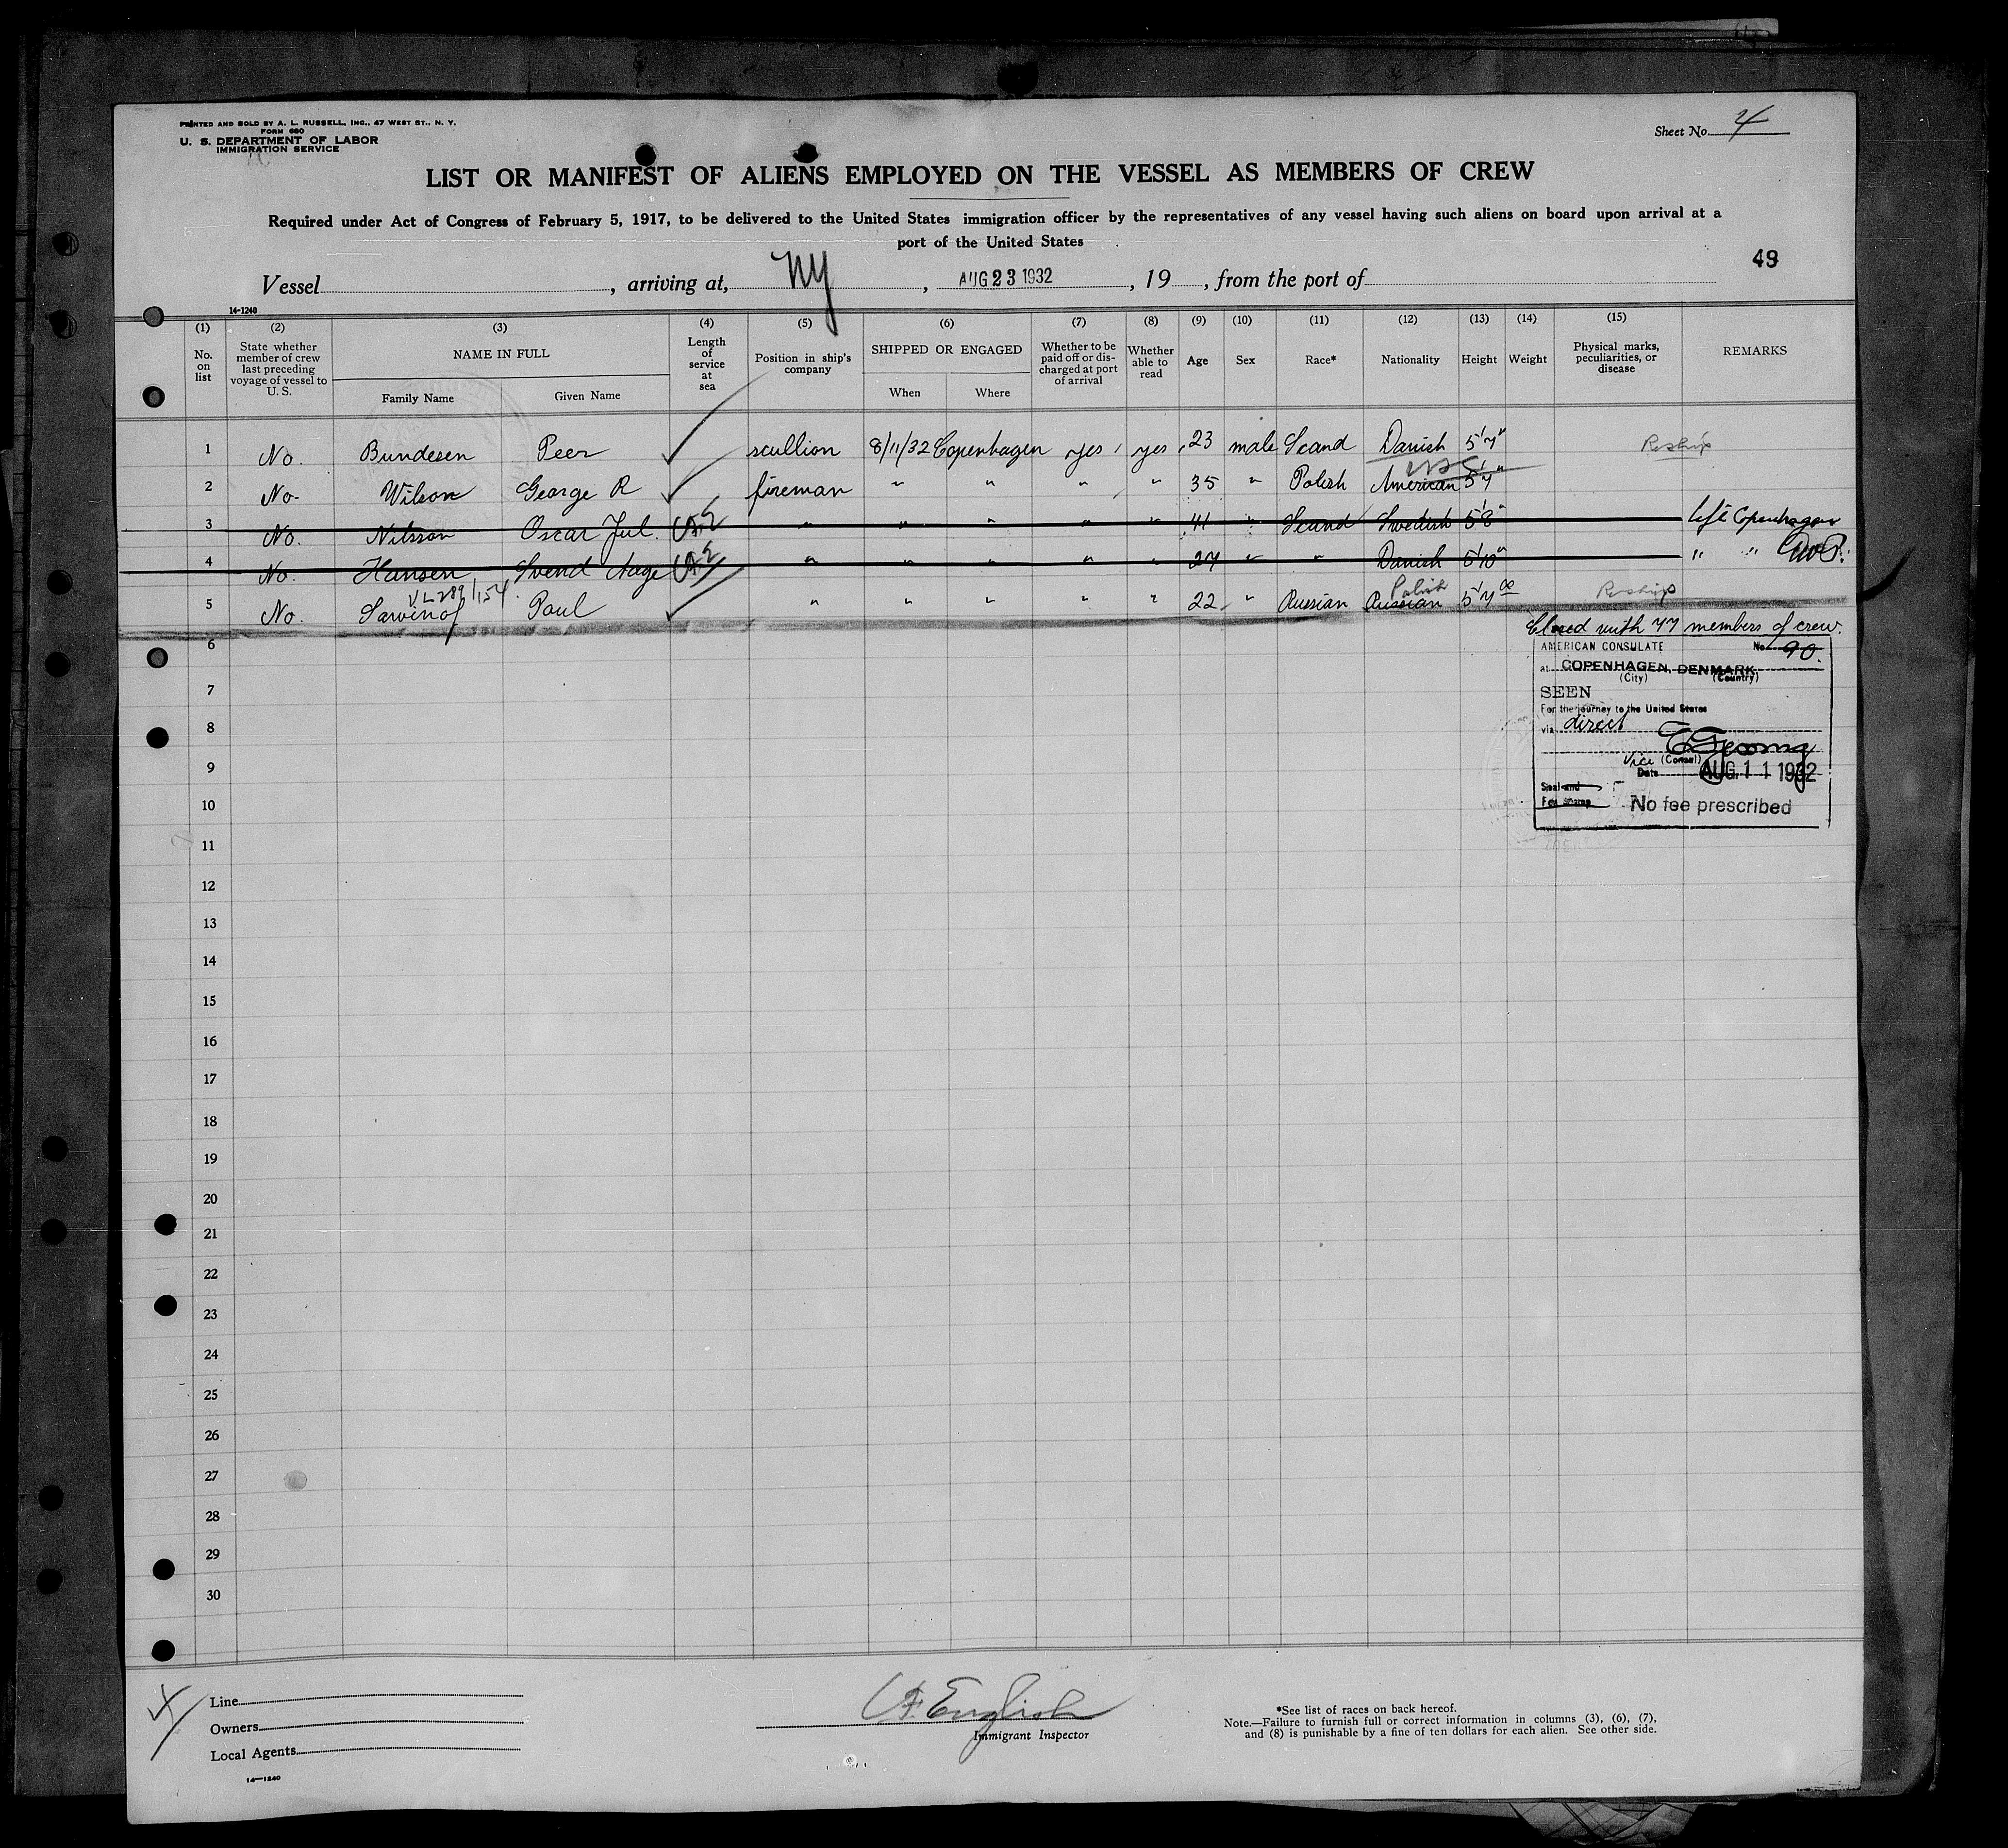 PRINTED AND SOLD BY A. L. RUSSELL, INC., 47 WEST ST., N. Y.
FORM 680
U. S. DEPARTMENT OF LABOR
IMMIGRATION SERVICE
Sheet No. 4
LIST OR MANIFEST OF ALIENS EMPLOYED ON THE VESSEL AS MEMBERS OF CREW
Required under Act of Congress of February 5, 1917, to be delivered to the United States immigration officer by the representatives of any vessel having such aliens on board upon arrival at a
port of the United States
49
Vessel , arriving at, NY , AUG 23 1932 , 19 , from the port of
14-1240
(1) No. on list
(2) State whether member of crew last preceding voyage of vessel to U. S.
(3) NAME IN FULL Family Name Given Name
(4) Length of service at sea
(5) Position in ship's company
(6) SHIPPED OR ENGAGED When Where
(7) Whether to be paid off or discharged at port of arrival
(8) Whether able to read
(9) Age
(10) Sex
(11) Race*
(12) Nationality
(13) Height
(14) Weight
(15) Physical marks, peculiarities, or disease
REMARKS
1 No. Bundesen Peer scullion 8/11/32 Copenhagen yes yes 23 male Scand Danish 5'7" Reship
2 No- Wilson George R fireman " " " " 35 " Polish American USC 5'7"
3 No. Nilsson Oscar Jul. " " " " " 41 " Scand Swedish 5'8" left Copenhagen
4 No. Hansen Svend Aage " " " " " 27 " " Danish 5'10" " "
VL289/154
5 No. Sawinof Paul " " " " " 22 " Russian Russian Polish 5'7" Reship
Closed with 77 members of crew.
6
AMERICAN CONSULATE No. 90.
at COPENHAGEN, DENMARK
(City) (Country)
7
SEEN
For the journey to the United States
8
via direct
Vice (Consul)
9
Date AUG 11 1932
Seal and
Fee Stamp No fee prescribed
10
11
12
13
14
15
16
17
18
19
20
21
22
23
24
25
26
27
28
29
30
Line
Owners
Local Agents
14-1240
English
Immigrant Inspector
*See list of races on back hereof.
Note.—Failure to furnish full or correct information in columns (3), (6), (7),
and (8) is punishable by a fine of ten dollars for each alien. See other side.